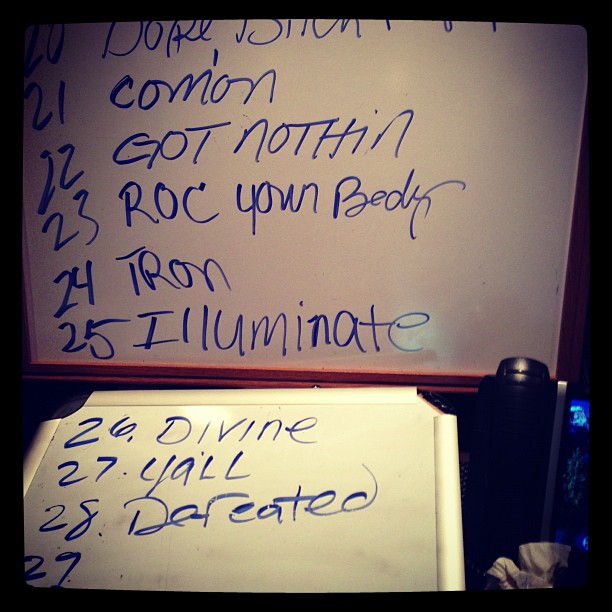 20 Dope, Bitch
21 comon
22 GOT nOTHin
23 ROC your Body
24 TRon
25 Illuminate
26. Divine
27. yall
28. Defeated
29